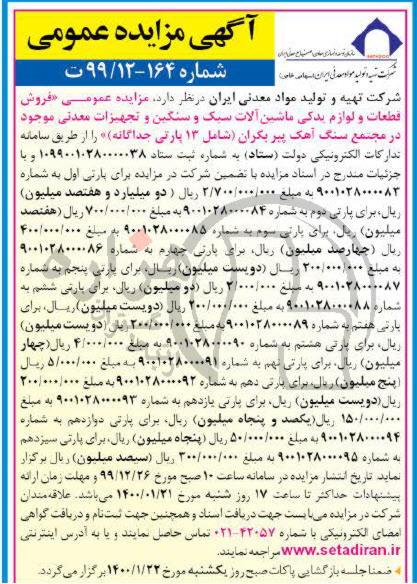 آگهی مزایده عمومی
شماره ۱۶۴-۹۹/۱۲ ت
شرکت تهیه و تولید مواد معدنی ایران (سهامی خاص)
شرکت تهیه و تولید مواد معدنی ایران درنظر دارد، مزایده عمومی «فروش
قطعات و لوازم یدکی ماشین‌آلات سبک و سنگین و تجهیزات معدنی موجود
در مجتمع سنگ آهک پیر بکران (شامل ۱۳ پارتی جداگانه)» را از طریق سامانه
تدارکات الکترونیکی دولت (ستاد) به شماره ثبت ستاد ۱۰۹۹۰۰۱۰۲۸۰۰۰۰۳۸ و با
جزئیات مندرج در اسناد مزایده با تضمین شرکت در مزایده برای پارتی اول به شماره
۹۰۰۱۰۲۸۰۰۰۰۸۳ به مبلغ ۲/۷۰۰/۰۰۰/۰۰۰ ریال ( دو میلیارد و هفتصد میلیون)
ریال، برای پارتی دوم به شماره ۹۰۰۱۰۲۸۰۰۰۰۸۴ به مبلغ ۷۰۰/۰۰۰/۰۰۰ ریال (هفتصد
میلیون) ریال، برای پارتی سوم به شماره ۹۰۰۱۰۲۸۰۰۰۰۸۵ به مبلغ ۴۰۰/۰۰۰/۰۰۰
ریال (چهارصد میلیون) ریال، برای پارتی چهارم به شماره ۹۰۰۱۰۲۸۰۰۰۰۸۶
به مبلغ ۲۰۰/۰۰۰/۰۰۰ ریال (دویست میلیون) ریال، برای پارتی پنجم به شماره
۹۰۰۱۰۲۸۰۰۰۰۸۷ به مبلغ ۲/۰۰۰/۰۰۰ ریال (دو میلیون) ریال، برای پارتی ششم به
شماره ۹۰۰۱۰۲۸۰۰۰۰۸۸ به مبلغ ۲۰۰/۰۰۰/۰۰۰ ریال (دویست میلیون) ریال، برای
پارتی هفتم به شماره ۹۰۰۱۰۲۸۰۰۰۰۸۹ به مبلغ ۲۰۰/۰۰۰/۰۰۰ ریال (دویست میلیون)
ریال، برای پارتی هشتم به شماره ۹۰۰۱۰۲۸۰۰۰۰۹۰ به مبلغ ۴/۰۰۰/۰۰۰ ریال (چهار
میلیون) ریال، برای پارتی نهم به شماره ۹۰۰۱۰۲۸۰۰۰۰۹۱ به مبلغ ۵/۰۰۰/۰۰۰ ریال
(پنج میلیون) ریال، برای پارتی دهم به شماره ۹۰۰۱۰۲۸۰۰۰۰۹۲ به مبلغ ۲۰۰/۰۰۰/۰۰۰
ریال (دویست میلیون) ریال، برای پارتی یازدهم به شماره ۹۰۰۱۰۲۸۰۰۰۰۹۳ به مبلغ
۱۵۰/۰۰۰/۰۰۰ ریال (یکصد و پنجاه میلیون) ریال، برای پارتی دوازدهم به شماره
۹۰۰۱۰۲۸۰۰۰۰۹۴ به مبلغ ۵۰/۰۰۰/۰۰۰ ریال (پنجاه میلیون) ریال، برای پارتی سیزدهم
به شماره ۹۰۰۱۰۲۸۰۰۰۰۹۵ به مبلغ ۳۰۰/۰۰۰/۰۰۰ ریال (سیصد میلیون) ریال برگزار
نماید. تاریخ انتشار مزایده در سامانه ساعت ۱۰ صبح مورخ ۹۹/۱۲/۲۶ و مهلت زمان ارائه
پیشنهادات حداکثر تا ساعت ۱۷ روز شنبه مورخ ۱۴۰۰/۰۱/۲۱ می‌باشد. علاقه‌مندان
شرکت در مزایده می‌بایست جهت دریافت اسناد و همچنین جهت ثبت‌نام و دریافت گواهی
امضای الکترونیکی با شماره ۴۲۰۵۷-۰۲۱ تماس حاصل نمایند و یا به آدرس اینترنتی
www.setadiran.ir مراجعه نمایند.
ضمنا جلسه بازگشایی پاکات صبح روز یکشنبه مورخ ۱۴۰۰/۱/۲۲ برگزار می‌گردد.